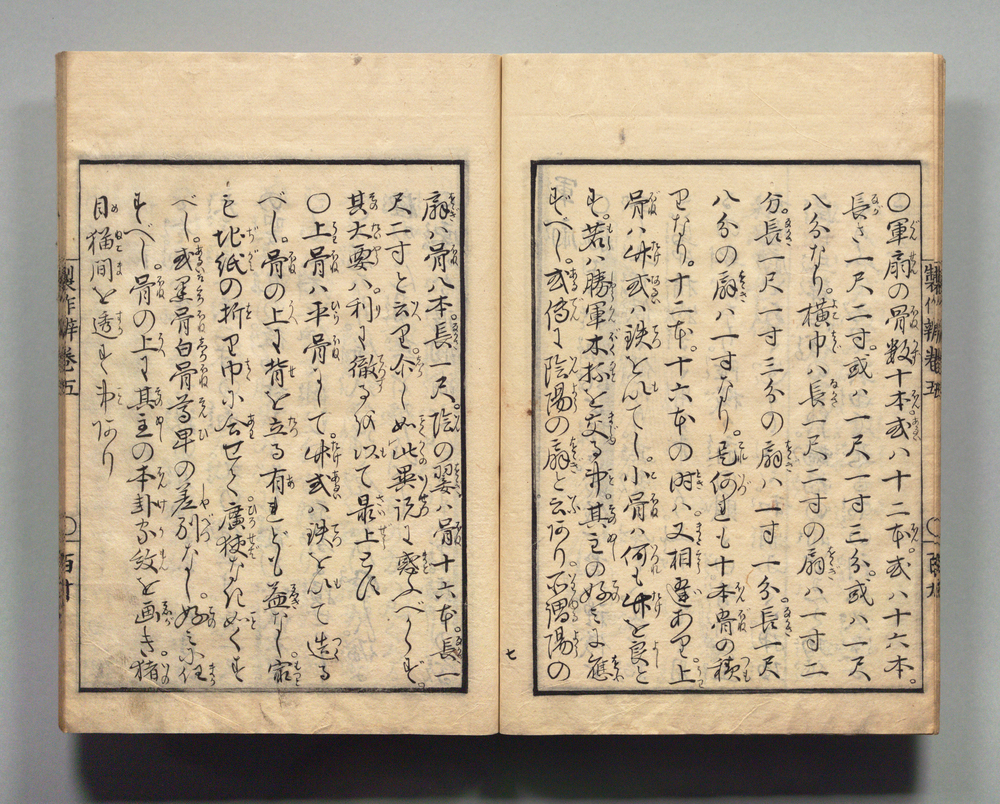 〇軍扇の骨数十本或ハ十二本或ハ十六本。
長さ一尺二寸。或ハ一尺一寸三分。或ハ一尺
八分なり。横巾ハ長一尺二寸の扇ハ一寸二
分。長一尺一寸三分の扇ハ一寸一分。長一尺
八分の扇ハ一寸なり。是何れも十本骨の積
りなり。十二本。十六本の時ハ又相違あり上
骨ハ竹或ハ鉄を以てし。小骨ハ何も竹を良と
す。若ハ勝軍木抔を交る事。其主の好ミに應
すべし。或傳に陰陽の扇と云あり所謂陽の
扇ハ骨八本。長一尺。陰の翣ハ骨十六本。長一
尺二寸と云り。介しめ此異説に惑ふべからず。
其大要ハ利に徹るを以て最上とす
〇上骨ハ平骨にして竹或ハ鉄を以て造る
べし。骨の上に背を立る有れども益なし家
も地紙の折り巾に合せて廣狭なきやうにす
べし。或黒骨白骨尊卑の差別なし。好ミに任
すべし。骨の上に其主の本卦家紋を画き猪
目猫間を透す事あり
製作辨巻五
製作辨巻五
七